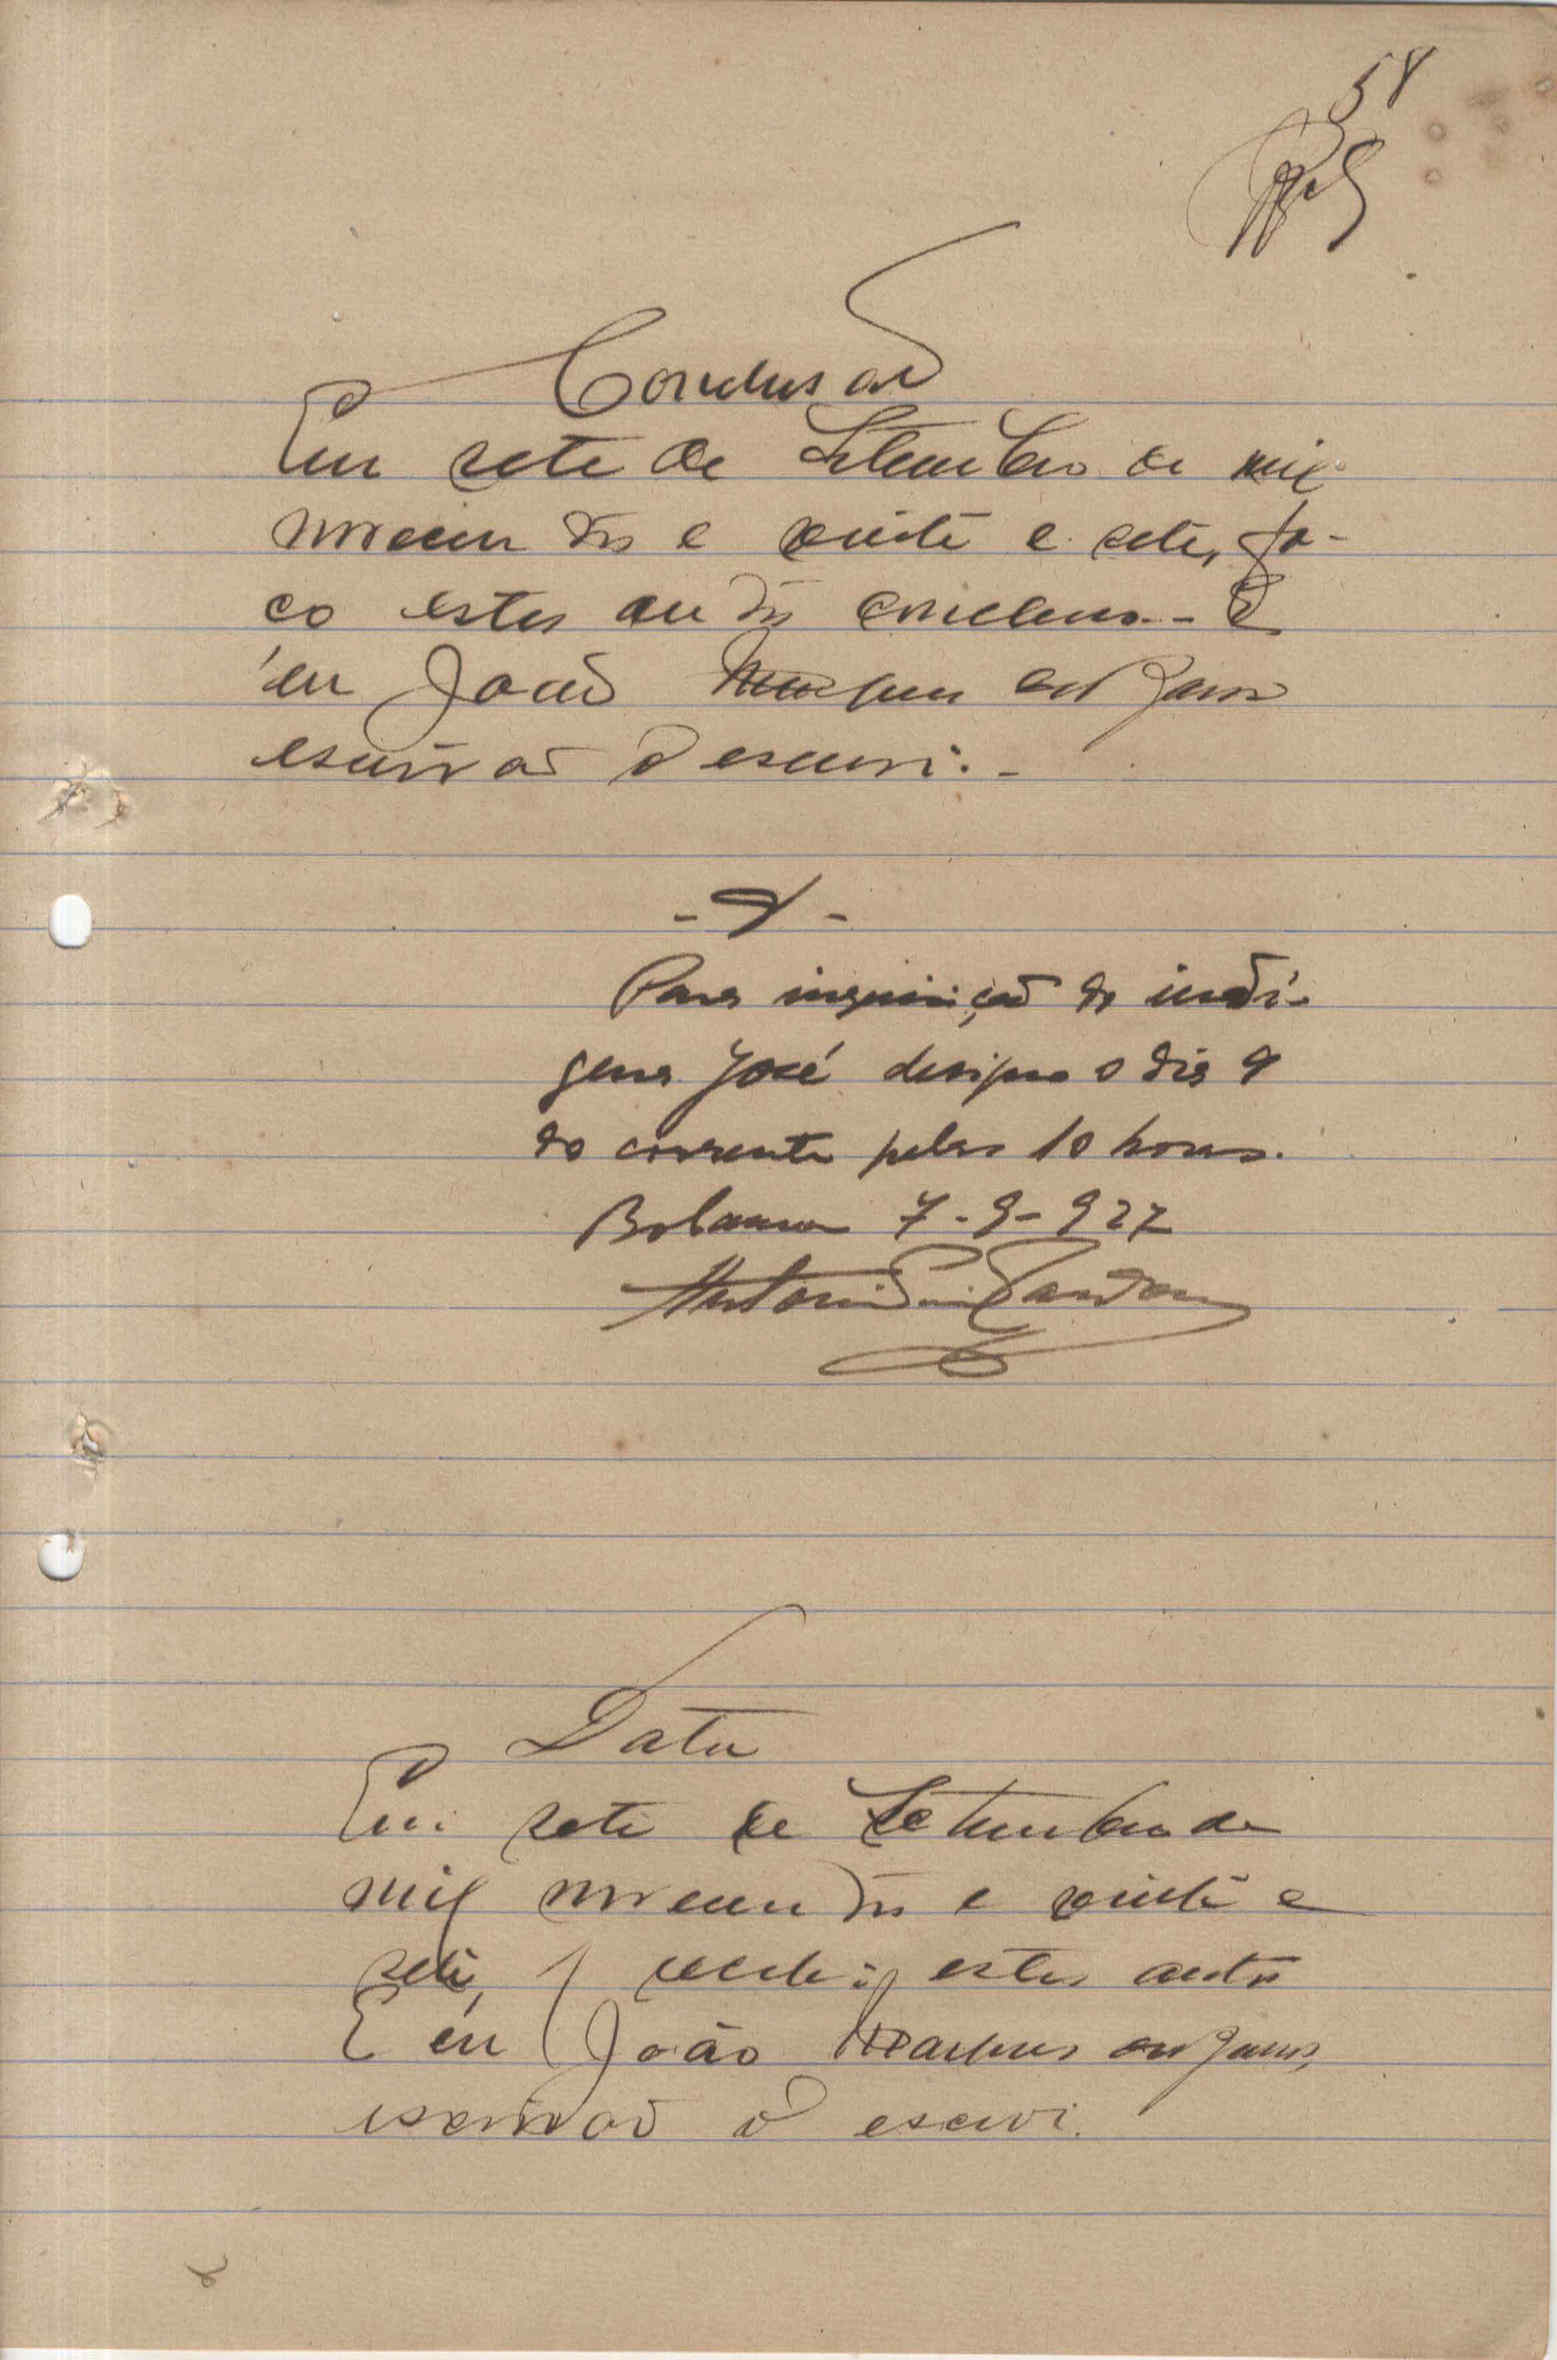 58
Conclusão
Em sete de Setembro de mil
novecentos e vinte e sete, fa-
ço estes autos conclusos. - E
eu João Marques
escrivão o escrevi. -
Para inquirição do indi-
gena José designo o dia 9
do corrente pelas 10 horas.
Bolama 7-9-927
Data
Em sete de Setembro de
mil novecentos e vinte e
sete, recebi estes autos
E eu João Marques
escrivão o escrevi.